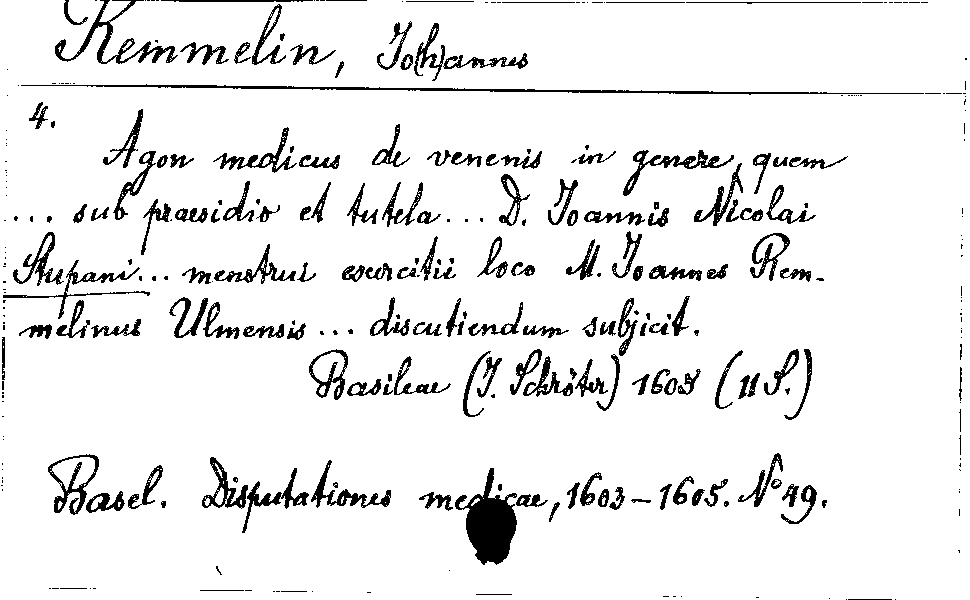 Remmelin, Jo(h)annes
4.
Agon medicus de venenis in genere, quem
... sub praesidio et tutela... D. Joannis Nicolai
Stupani... menstrui exercitii loco M. Joannes Rem-
melinus Ulmensis ... discutiendum subjicit.
Basileae (J. Schröter) 1605 (11 S.)
Basel. Disputationes medicae, 1603-1605. No 49.